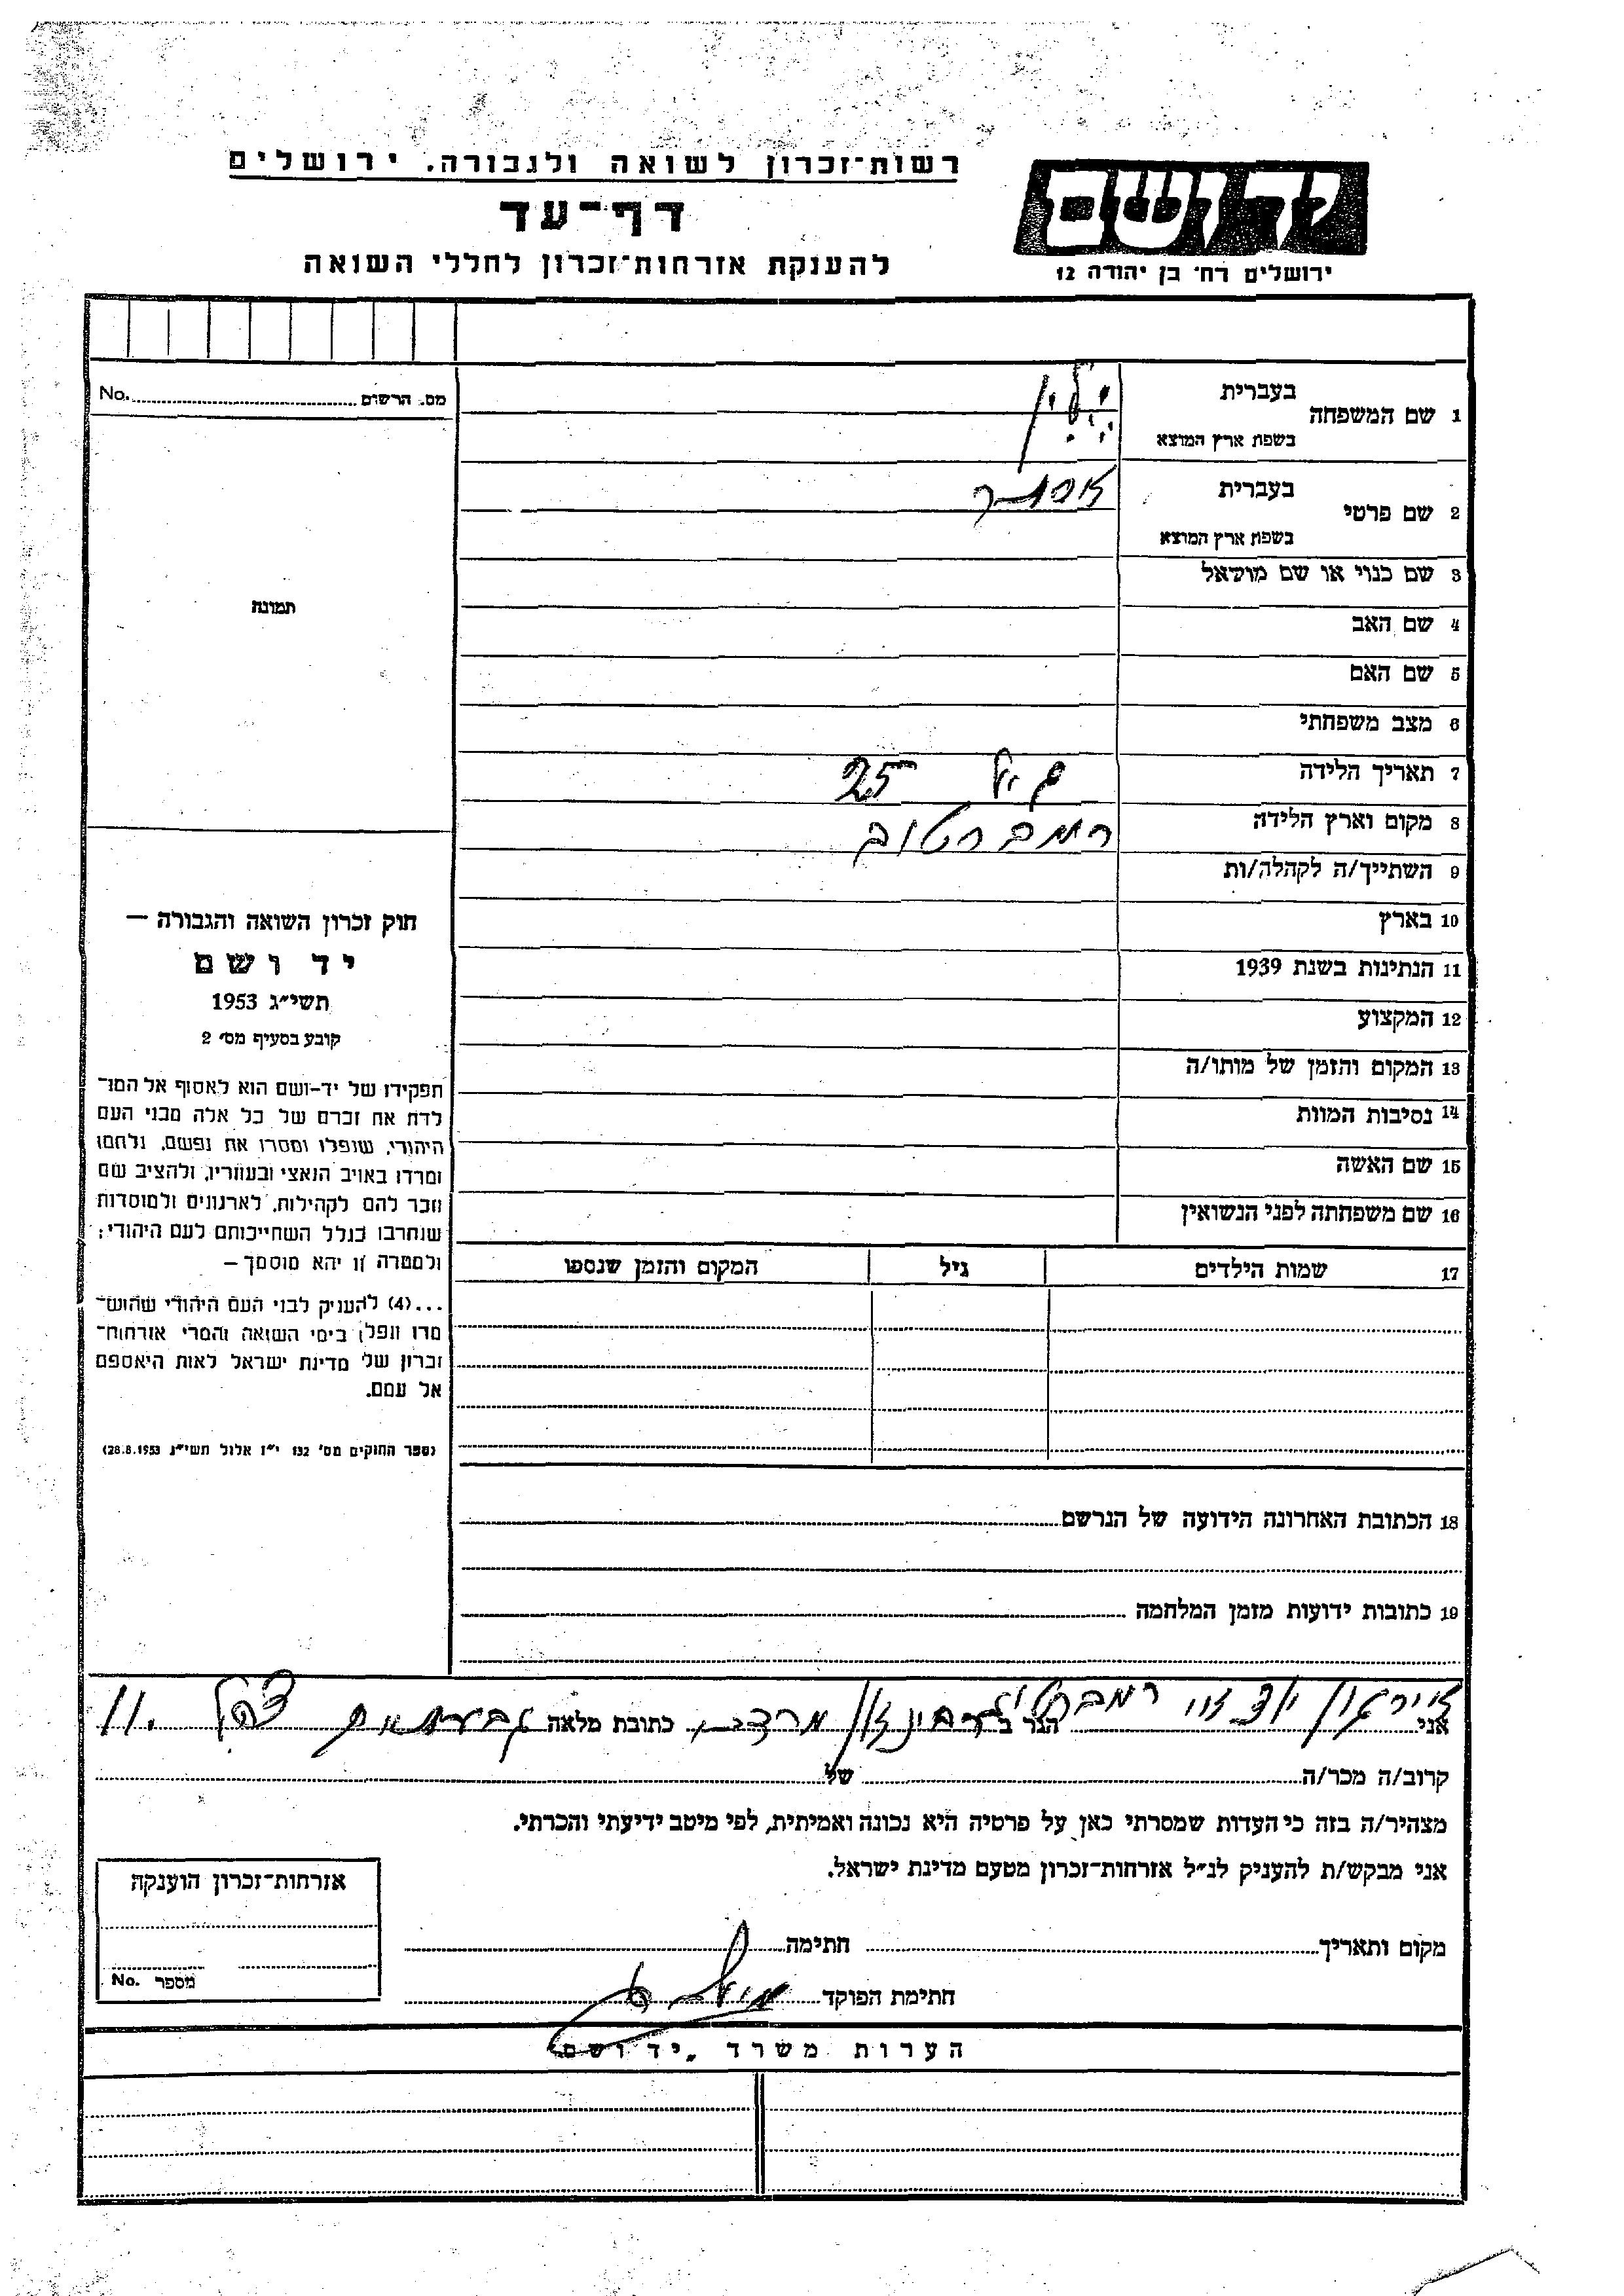 רשות־זכרון לשואה ולגבורה. ירושלים
דף־עד
להענקת אזרחות־זכרון לחללי השואה
יד ושם
ירושלים רח׳ בן יהודה 12
מס. הרשום No.
תמונה
1 שם המשפחה
בעברית
בשפת ארץ המוצא
2 שם פרטי
בעברית אסתר
בשפת ארץ המוצא
3 שם כנוי או שם מושאל
4 שם האב
5 שם האם
6 מצב משפחתי
7 תאריך הלידה גיל 25
8 מקום וארץ הלידה רמברטוב
9 השתייך/ה לקהלה/ות
10 בארץ
11 הנתינות בשנת 1939
12 המקצוע
13 המקום והזמן של מותו/ה
14 נסיבות המוות
15 שם האשה
16 שם משפחתה לפני הנשואין
17 שמות הילדים גיל המקום והזמן שנספו
18 הכתובת האחרונה הידועה של הנרשם
19 כתובות ידועות מזמן המלחמה
חוק זכרון השואה והגבורה —
יד ושם
תשי״ג 1953
קובע בסעיף מס׳ 2
תפקידו של יד-ושם הוא לאסוף אל המו־
לדת את זכרם של כל אלה מבני העם
היהודי, שנפלו ומסרו את נפשם, נלחמו
ומרדו באויב הנאצי ובעוזריו, ולהציב שם
וזכר להם לקהילות, לארגונים ולמוסדות
שנחרבו בגלל השתייכותם לעם היהודי;
ולמטרה זו יהא מוסמך —
...(4) להעניק לבני העם היהודי שהוש־
מדו ונפלו בימי השואה והמרי אזרחות־
זכרון של מדינת ישראל לאות היאספם
אל עמם.
(ספר החוקים מס׳ 132 י״ז אלול תשי״ג 28.8.1953)
אני ארגון יוצאי רמברטוב הגר ב כתובת מלאה גבעתיים 11.
קרוב/ה מכר/ה של
מצהיר/ה בזה כי העדות שמסרתי כאן על פרטיה היא נכונה ואמיתית, לפי מיטב ידיעתי והכרתי.
אני מבקש/ת להעניק לנ״ל אזרחות־זכרון מטעם מדינת ישראל.
מקום ותאריך חתימה
חתימת הפוקד
אזרחות־זכרון הוענקה
מספר No.
הערות משרד „יד ושם"